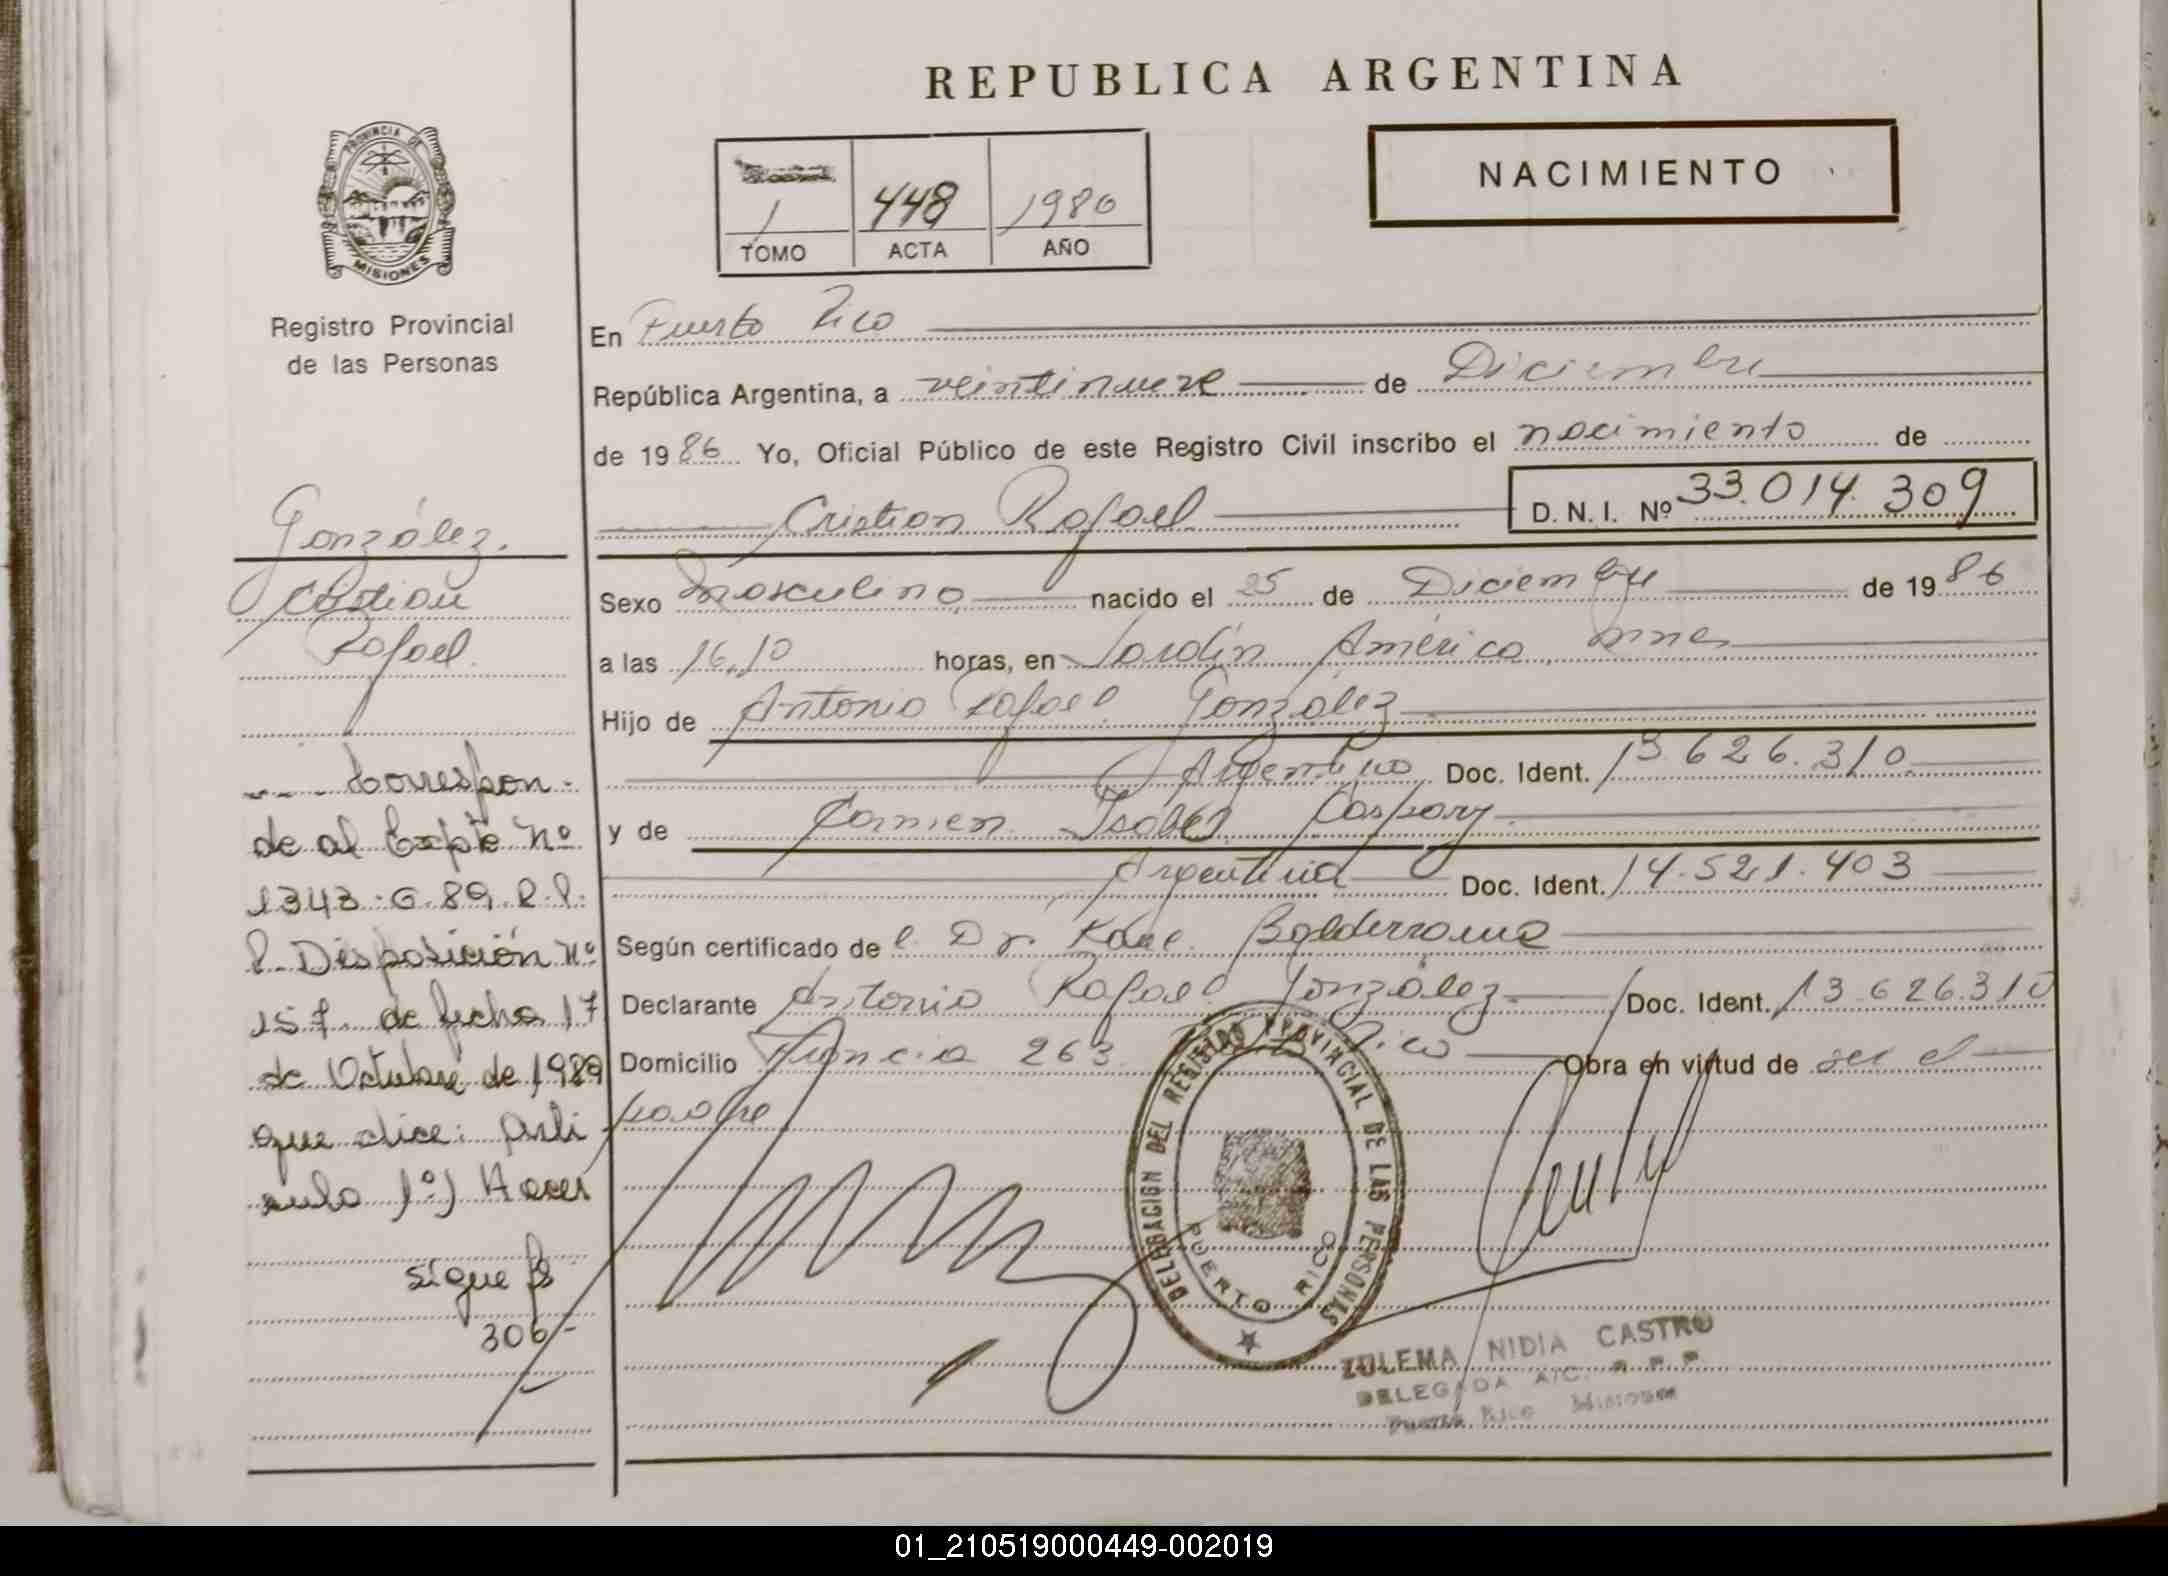 REPUBLICA ARGENTINA
NACIMIENTO
1 448 1986
TOMO ACTA AÑO
PROVINCIA DE
MISIONES
Registro Provincial
de las Personas
En Puerto Rico
República Argentina, a veintinueve de Diciembre
de 1986 Yo, Oficial Público de este Registro Civil inscribo el nacimiento de
Cristian Rafael
D. N. I. Nº 33.014.309
Sexo masculino nacido el 25 de Diciembre de 1986
a las 16.10 horas, en Jardín América, mnes
Hijo de Antonio Rafael González
Argentino Doc. Ident. 13.626.310
y de Carmen Isabel Caspary
Argentina Doc. Ident. 14.521.403
Según certificado de l. Dr. Balderrama
Declarante Antonio Rafael González Doc. Ident. 13.626.310
Domicilio Francia 263 Pto Rico Obra en virtud de ser el
padre
González.
Cristian
Rafael.
Correspon-
de al Expte Nº
1343.G.89.R.P.
P. Disposición Nº
157 de fecha 17
de Octubre de 1989
que dice: Artí
culo 1º) Hacer
sigue fs
306-
DELEGACION DEL REGISTRO PROVINCIAL DE LAS PERSONAS
PUERTO RICO
ZULEMA NIDIA CASTRO
DELEGADA A/C. R P P
Puerto Rico Misiones
01_210519000449-002019